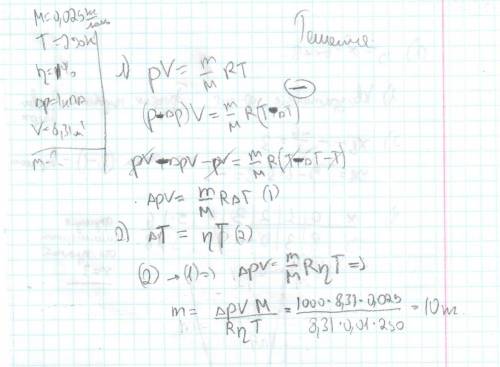 Решение
M=0,025 кг/моль
T=250K
η=1%
Δp=1кПа
V=8,31м³
m-?
1) pV = m/M RT
(p-Δp)V = m/M R(T-ΔT)
pV-ΔpV-pV = m/M R(T-ΔT-T)
ΔpV = m/M RΔT (1)
2) ΔT = ηT (2)
(2) → (1) => ΔpV = m/M RηT =>
m = ΔpVM/RηT = 1000·8,31·0,025/8,31·0,01·250 = 10 кг.